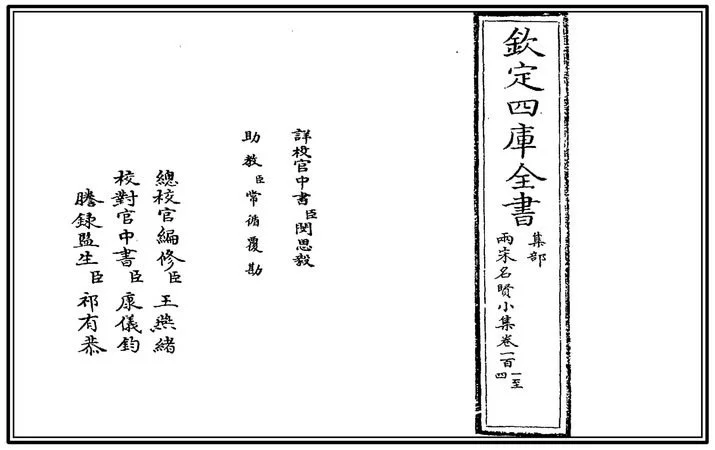 欽定四庫全書
集部
兩宋名賢小集卷一百一至
四
詳校官中書臣閔思毅
助教臣常循覆勘
總校官編修臣王燕緒
校對官中書臣康儀鈞
謄錄監生臣祁有恭